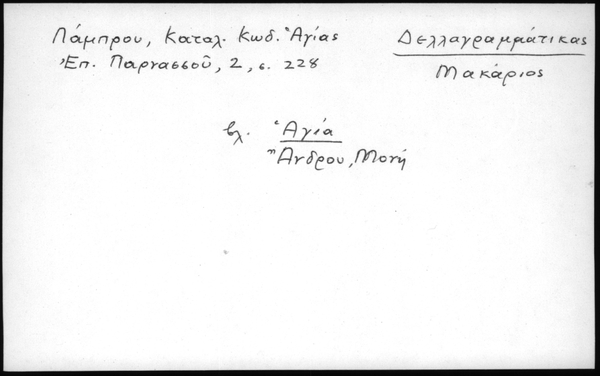 Λάμπρου, Καταλ. Κωδ. Ἁγίας
Ἐπ. Παρνασσοῦ, 2, σ. 228
Δελλαγραμμάτικας
Μακάριος
βλ. Ἁγία
Ἄνδρου, Μονή